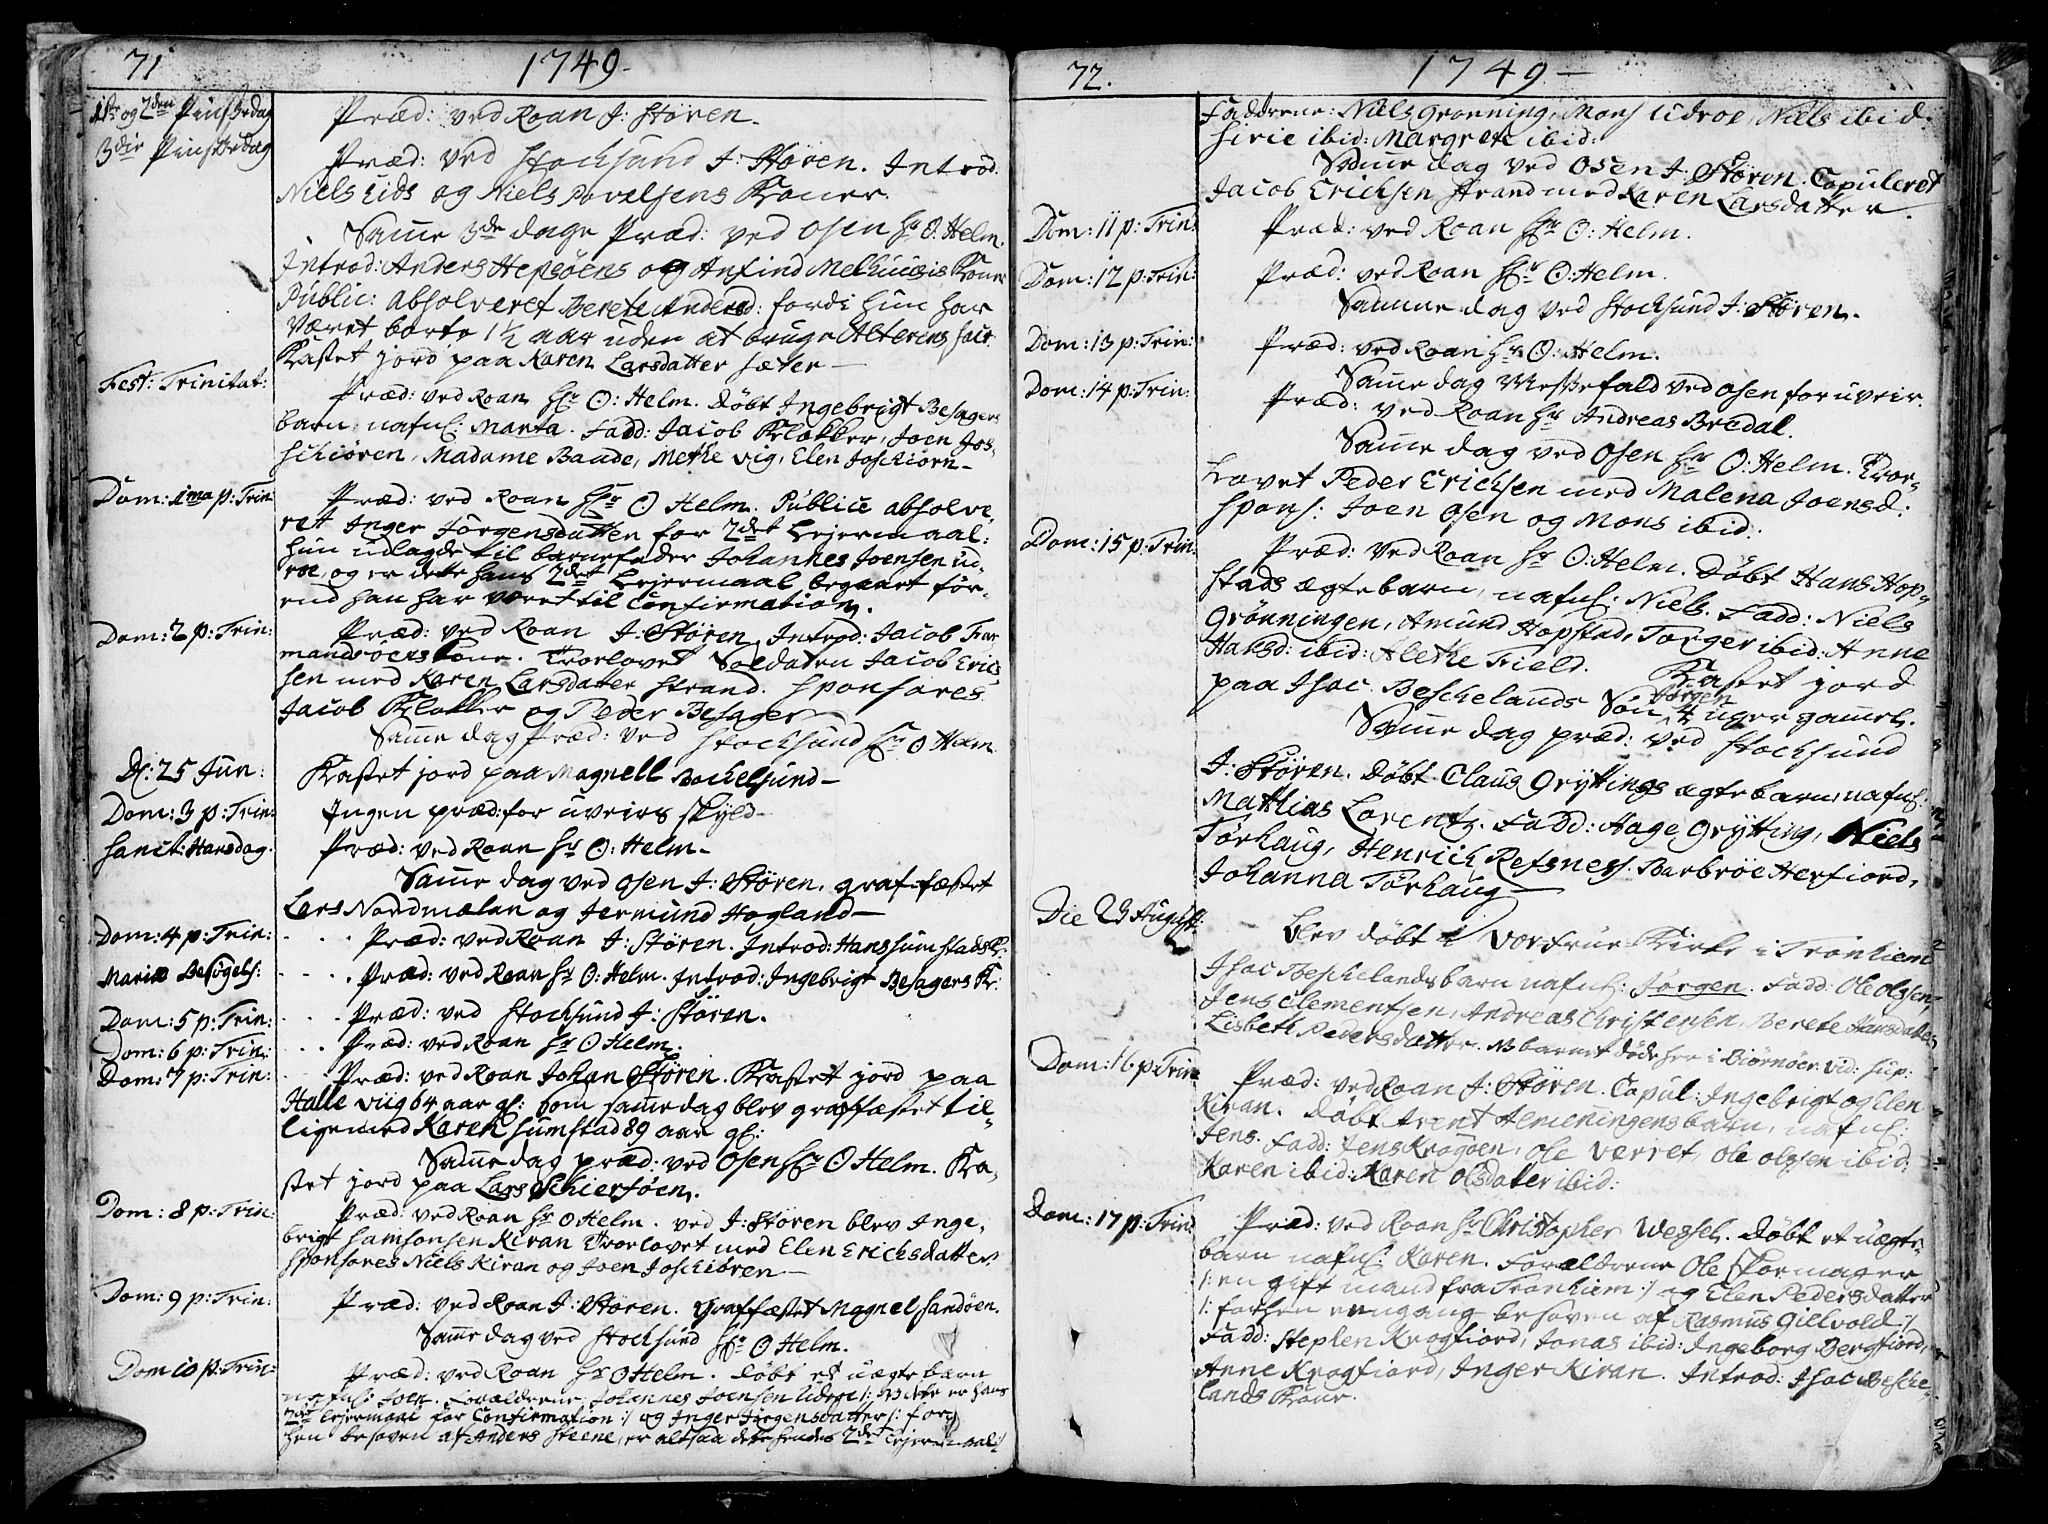 71 1749-
1ste og 2den Pinsedag Præd: ved Roan J: Støren.
3die Pinsedag Præd: ved Stocksund J: Støren. Introd:
Niels Eids og Niels Povelsens Koner.
Samme 3de dage Præd: ved Osen Hr O: Helm.
Introd: Anders Hepsøens og Anfind Melhuusis Kone
Public: absolveret Berete Andersd: fordi hun har
Været borte 1½ aar uden at bruge Alterens Sacr:
Kastet jord paa Karen Larsdatter Sæter-
Fest: Trinitat: Præd: ved Roan Hr O: Helm. Døbt Ingebrigt Besagers
barn, nafnl: Marta. Fadd: Jacob Klokker, Joen Jos-
schiøren, Madame Baade, Methe Vig, Elen Joschiørn-
Dom: 1ma p: Trin: Præd: ved Roan Hr O Helm. Publice absolve-
ret Inger Jørgensdatter for 2det Lejermaal:
hun udlagde til barnefader Johannes Joensen ud-
roe, og er dette hans 2det Lejermaal begaaet før-
end han har været til Confirmation.
Dom: 2 p: Trin: Præd: ved Roan J: Støren. Introd: Jacob Far
mandsoers Kone. Troelovet Soldaten Jacob Erics
sen med Karen Larsdatter Strand. Sponsores
Jacob Klokker og Peder Besager-
Samme dag Præd: ved Stocksund Hr O Helm.
D: 25 Jun: Kastet jord paa Magnell Bockelsund-
Dom: 3 p: Trin: Ingen præd: for uveirs skyld-
Sanct: Hansdag. Præd: ved Roan Hr O: Helm-
Samme dag ved Osen J: Støren. graf-fæstet
Lars Nordmælan og Jermund Hogland-
Dom: 4 p: Trin: Præd: ved Roan J: Støren. Introd: Hans Sumstads K:
Mariæ Besøgels: Præd: ved Roan Hr O: Helm. Introd: Ingebrigt Besagers K:
Dom: 5 p: Trin: Præd: ved Stocksund J: Støren.
Dom: 6 p: Trin: Præd: ved Roan Hr O Helm.
Dom: 7 p: Trin: Præd: ved Roan Johan Støren. Kastet jord paa
Halle viig 64 aar gl: som samme dag blev graffæstet til-
ligemed Karen Sumstad 89 aar gl:
Samme dag præd: ved Osen Hr O Helm. Ka-
stet jord paa Lars Schiersøen.
Dom: 8 p: Trin: Præd: ved Roan Hr O Helm. ved J: Støren blev Inge-
brigt Samsonsen Kiran Troelovet med Elen Erichsdatter:
Sponsores Niels Kiran og Joen Joschiören-
Dom: 9 p: Trin: Præd: ved Roan J: Støren. Graffæstet Magnel Sandøen.
Samme dag ved Stocksund Hr O Helm.
Dom 10 p: Trin: Præd: ved Roan Hr O Helm. Døbt et uægte barn
nafnl: Joen. Forældrene Johannes Joensen Udroe /: NB dette er hans
2det Lejermaal før Confirmation :/ og Inger Jørgensdatter /: for-
hen besoven af Anders Steene, er altsaa dette hendes 2det Lejermaal :/
72. 1749-
Fadderne: Niels Grønning, Mons Udroe, Niels ibid.
Sirie ibid: Margret ibid:
Samme dag ved Osen J: Støren. Copuleret
Jacob Ericksen Strand med Karen Larsdatter.
Dom: 11 p: Trin: Præd: ved Roan Hr O: Helm.
Dom: 12 p: Trin: Præd: ved Roan Hr O: Helm.
Samme dag ved Stocksund J: Støren.
Dom: 13 p: Trin: Præd: ved Roan Hr O: Helm.
Samme dag Messefald ved Osen for uveir.
Dom: 14 p: Trin: Præd: ved Roan Hr Andreas Bredal.
Samme dag ved Osen Hr O: Helm. Troe-
Lovet Peder Ericksen med Malena Joensd:
Spons: Joen Osen og Mons ibid:
Dom: 15 p: Trin: Præd: ved Roan Hr O: Helm. Døbt Hans Hop-
stads ægte barn, nafnl: Niels. Fadd: Niels
Grønningen, Amund Hopstad, Torger ibid: Anne
Hansd: ibid: Alethe Field. Kastet jord
paa Isac Beschelands Søn Jørgen 4 uger gamel.
Samme dag præd: ved Stocksund
J: Støren. Døbt Claus Gryttings ægte barn, nafnl:
Mathias Lorentz. Fadd: Aage Grytting, Niels
Tørhaug, Henrich Refsness. Barbroe Herfiord,
Johanna Tørhaug-
Die 23 August: Blev døbt i Vor Frue Kirke i Tronhiem
Isac Beschelands barn nafnl: Jørgen. Fadd: Ole Olssen,
Jens Clementsen, Andreas Christensen, Berete Hansdatter
Lisbeth Pedersdatter. NB barnet døde her i Biørnøer. vid: Sup:
Dom: 16 p: Trin: Præd: ved Roan J: Støren. Copul: Ingebrigt og Elen
Kiran. Døbt Arent Hemeningens barn, nafnl:
Jens. Fadd: Jens Krogøen, Ole Verret, Ole Olssen ibid:
Karen ibid: Karen Olsdatter ibid:
Dom: 17 p: Trin: Præd: ved Roan Hr Christopher Wessel. Døbt et uægte-
barn nafnl: Karen. Forældrene Ole Skomager
/: en gift mand fra Tronhiem :/ og Elen Pedersdatter
/: forhen eengang besoven af Rasmus Gilevold :/
Fadd: Stephen Krogfiord, Jonas ibid: Ingeborg Bergfiord,
Anne Krogfiord, Inger Kiran. Introd: Isac Besche-
lands Kone.